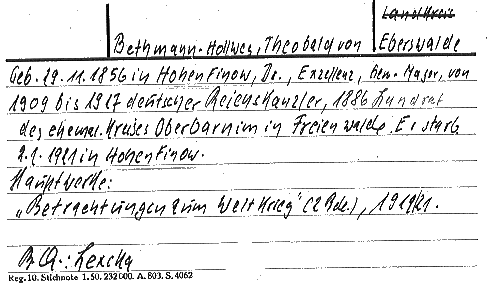 Landkreis
Bethmann-Hollweg, Theobald von Eberswalde
Geb. 29.11.1856 in Hohenfinow, Dr., Exzellenz, Gen. Major, von
1909 bis 1917 deutscher Reichskanzler, 1886 Landrat
des ehemal. Kreises Oberbarnim in Freienwalde. Er starb
2.1.1921 in Hohenfinow.
Hauptwerke:
„Betrachtungen zum Weltkrieg" (2 Bde.), 1919/21.
Reg. 10. Stichnote 1. 50. 232 000. A. 803. S. 4062